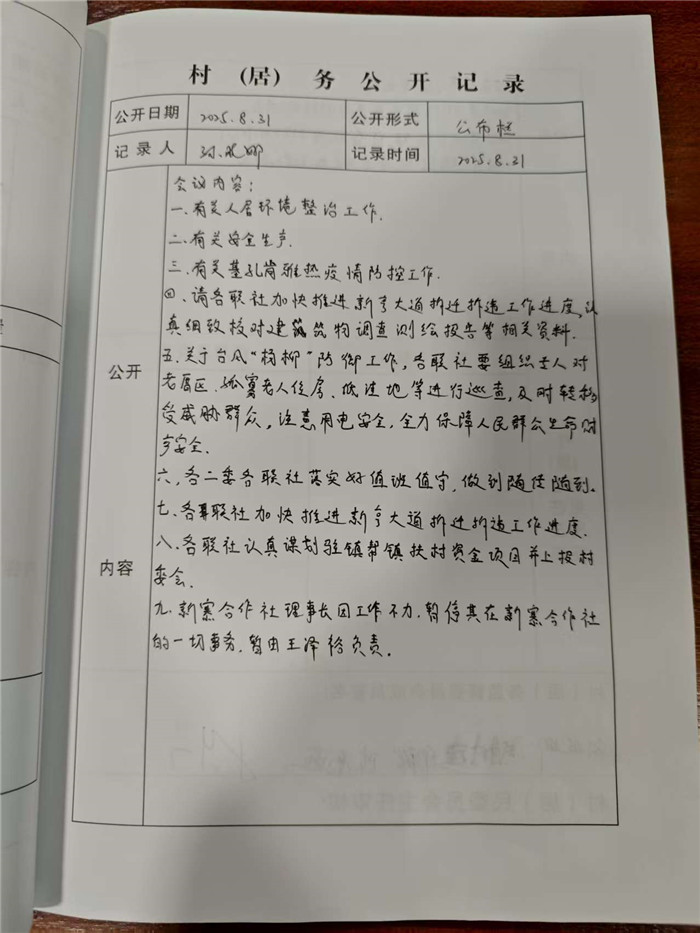 村（居）务公开记录
公开日期 2025.8.31 公开形式 公布栏
记录人 娜 记录时间 2025.8.31
公开
内容
会议内容：
一、有关人居环境整治工作.
二、有关安全生产.
三、有关基孔肯雅热疫情防控工作.
四、请各联社加快推进新亨大道拆迁拆违工作进度,认
真细致核对建筑物调查测绘报告等相关资料.
五.关于台风"杨柳"防御工作,各联社要组织专人对
老厝区、孤寡老人住房、低洼地等进行巡查,及时转移
受威胁群众,注意用电安全,全力保障人民群众生命财
产安全.
六,各二委各联社落实好值班值守,做到随传随到.
七、各联社加快推进新亨大道拆迁拆违工作进度.
八、各联社认真谋划驻镇帮镇扶村资金项目并上报村
委会.
九.新寨合作社理事长因工作不力.暂停其在新寨合作社
的一切事务.暂由王泽裕负责.